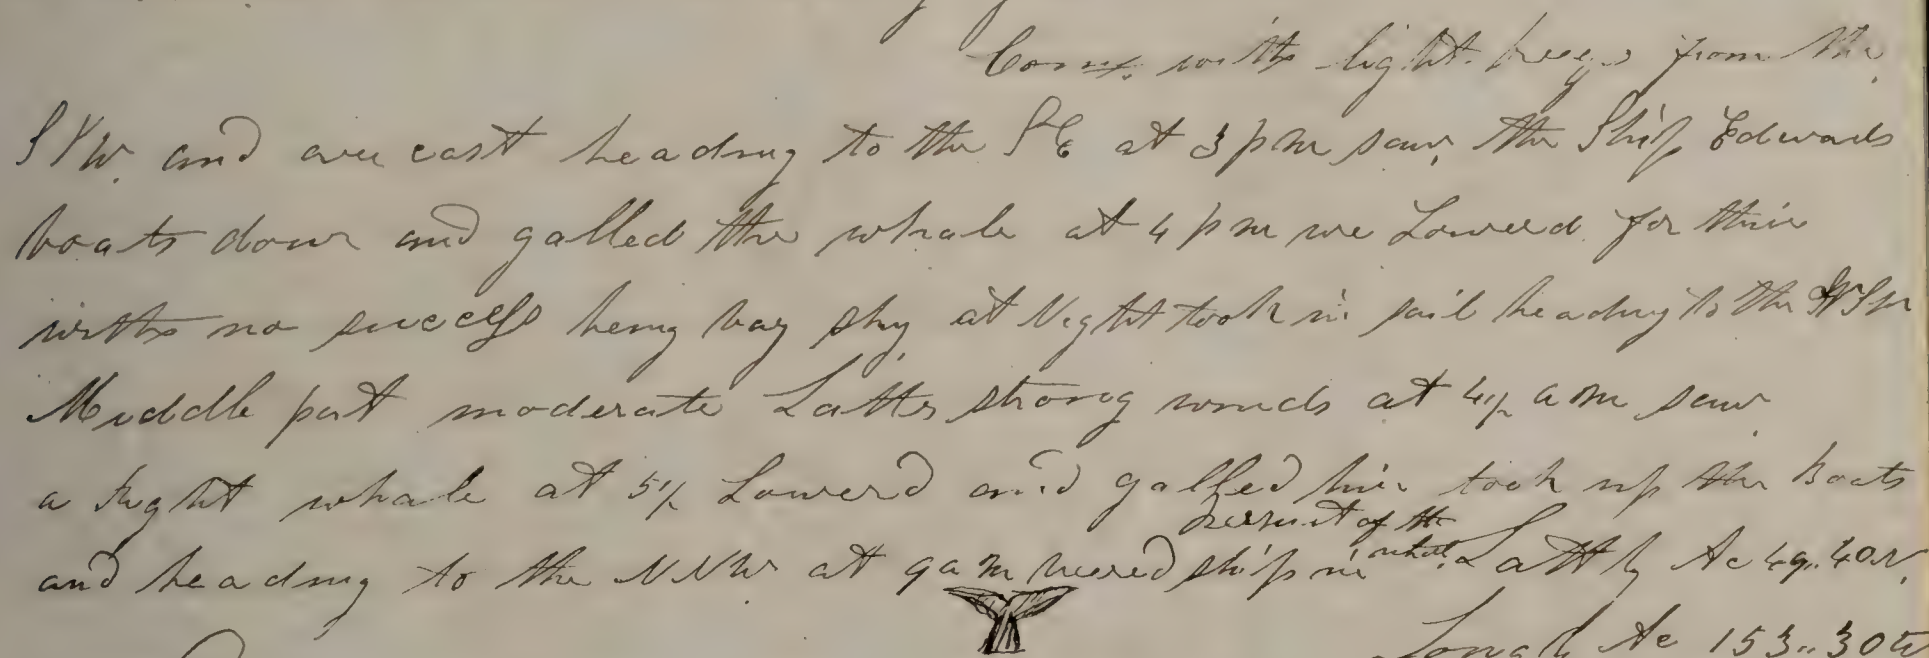 Comes with light breeze from the
SSW. and over cast heading to the SE at 3 pm saw the Ship Edwards
boats down and galled the whale at 4 pm we Lowered for their
with no success being vary shy at Night took in sail heading to the WSW
Middle part moderate Latter strong winds at 4½ am saw
a Right whale at 5½ Lowerd and galled him took up the Boats
persuit of the
and heading to the NNW at 9 am weared ship in whale Latt by Ac 49..40 N.
Long by Ac 153..30 W